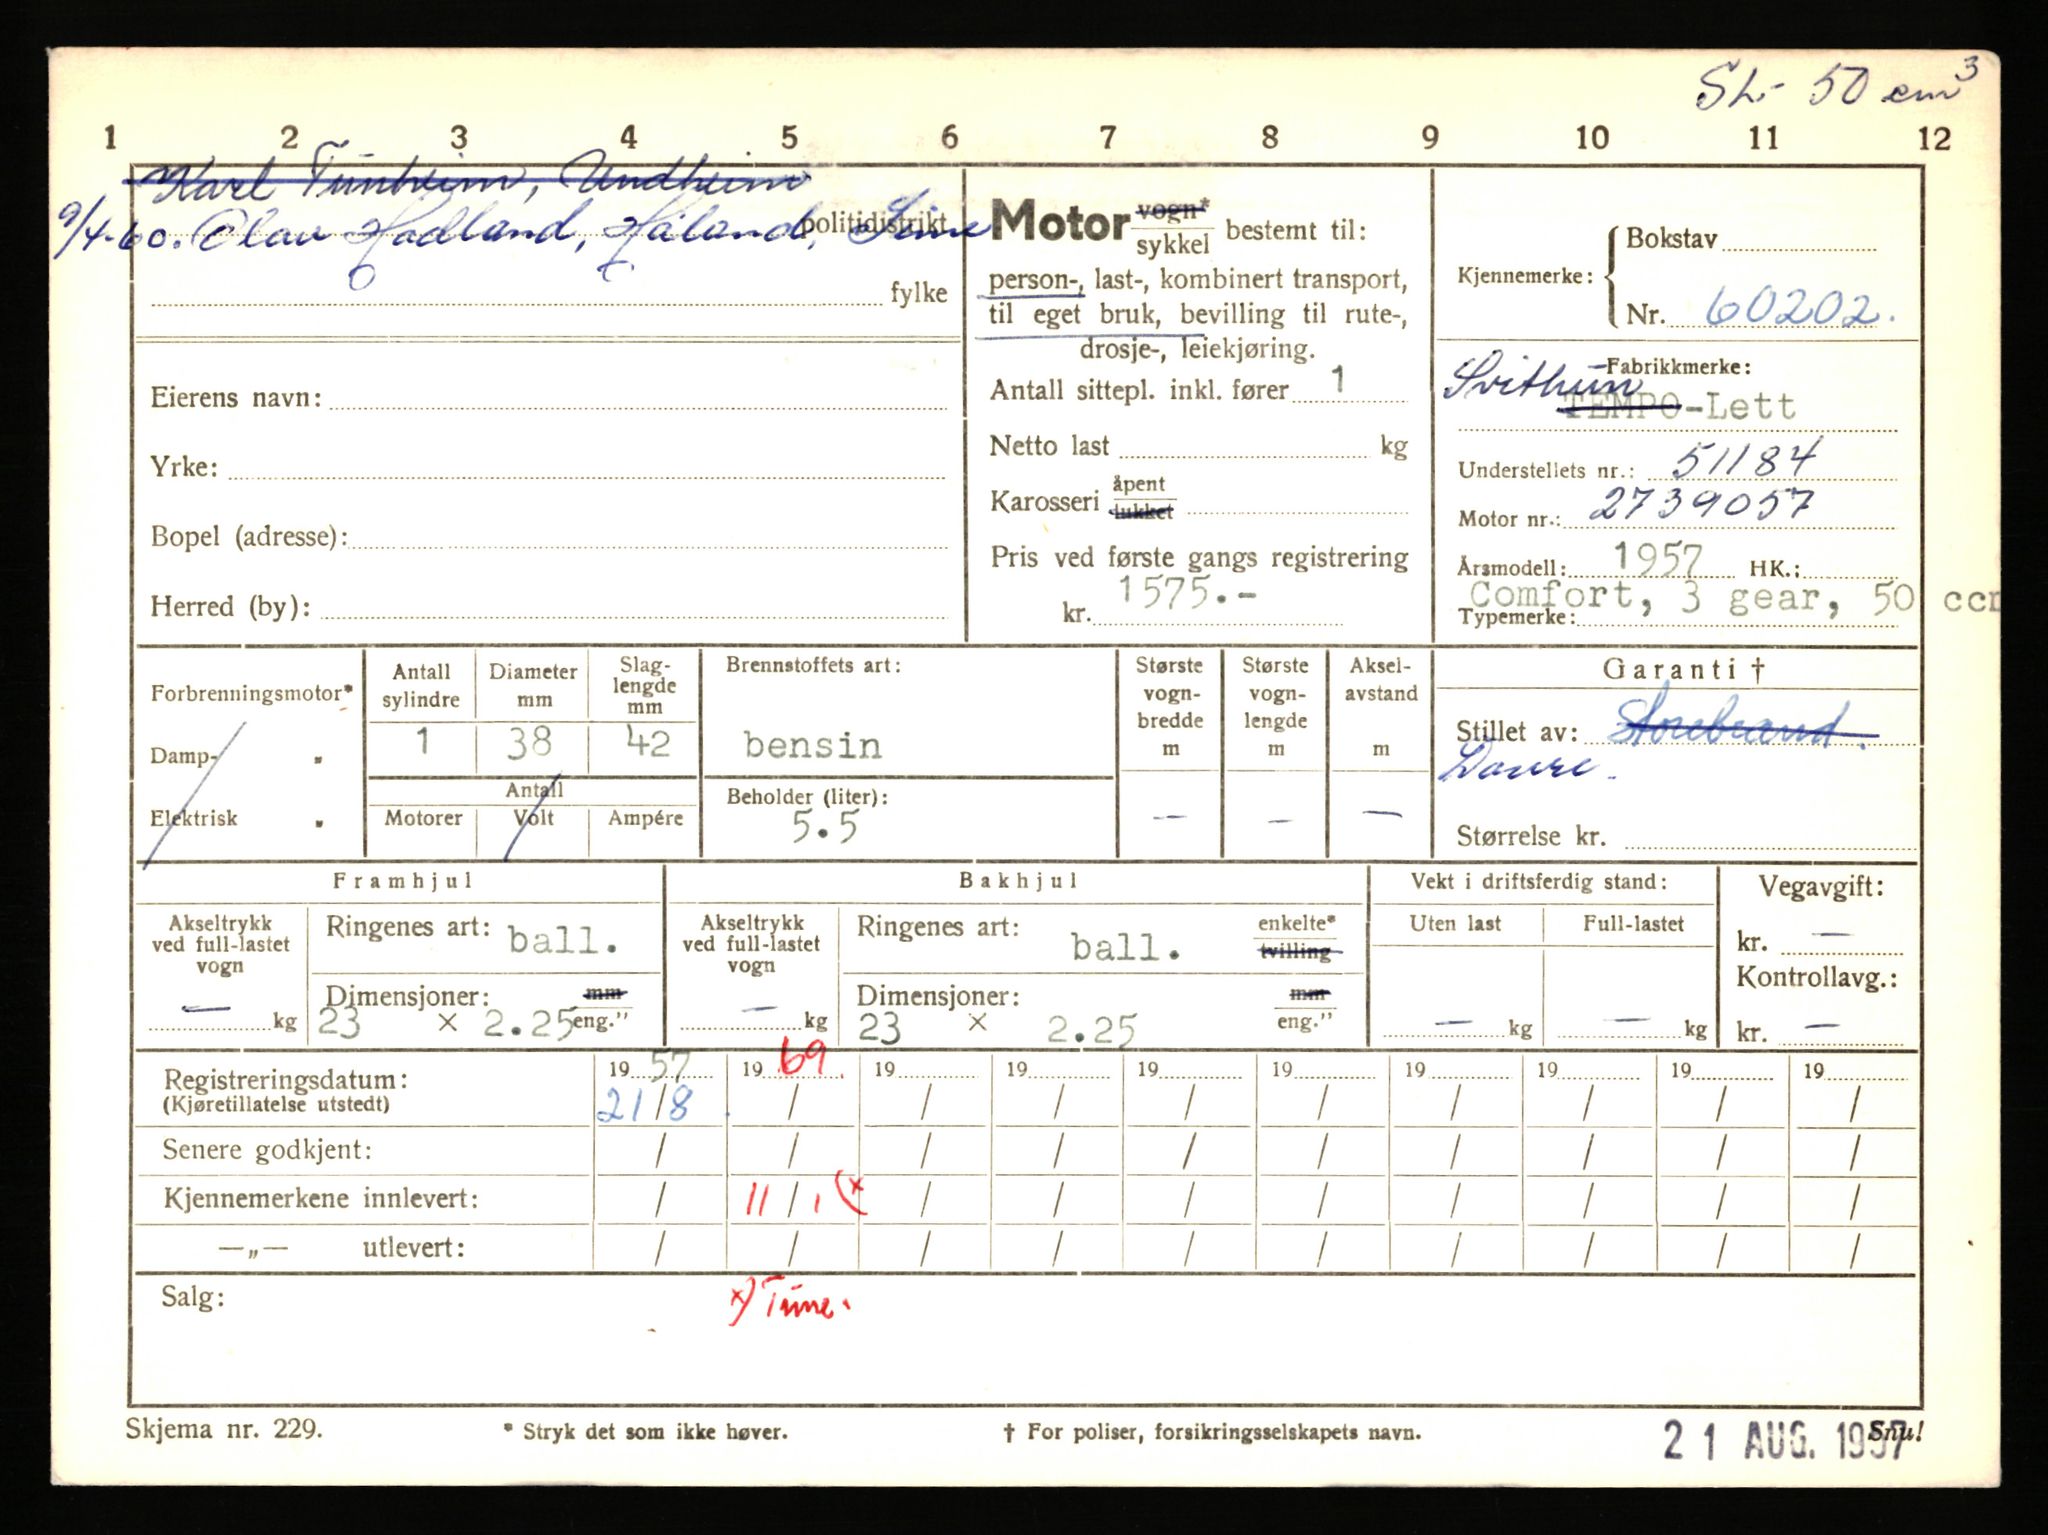 SL- 50 cm³
1 2 3 4 5 6 7 8 9 10 11 12
Karl Tunheim, Undheim
9/4-60. Olav Hadland, Håland, Time
politidistrikt
fylke
Eierens navn:
Yrke:
Bopel (adresse):
Herred (by):
Motor vogn*/sykkel bestemt til:
person-, last-, kombinert transport,
til eget bruk, bevilling til rute-,
drosje-, leiekjøring.
Antall sittepl. inkl. fører 1
Netto last kg
Karosseri åpent/lukket
Pris ved første gangs registrering
kr. 1575.-
Kjennemerke: Bokstav
Nr. 60202.
Fabrikkmerke:
Svithun
TEMPO-Lett
Understellets nr.: 51184
Motor nr.: 2739057
Årsmodell: 1957 HK.:
Comfort, 3 gear, 50 ccm
Typemerke:
Forbrenningsmotor*
Damp- "
Elektrisk "
Antall sylindre 1
Diameter mm 38
Slaglengde mm 42
Antall
Motorer Volt Ampére
Brennstoffets art:
bensin
Beholder (liter):
5.5
Største vogn-bredde m —
Største vogn-lengde m —
Aksel-avstand m —
Garanti †
Stillet av: Storebrand.
Størrelse kr.
Framhjul
Akseltrykk ved full-lastet vogn
— kg
Ringenes art: ball.
Dimensjoner: mm
23 × 2.25 eng."
Bakhjul
Akseltrykk ved full-lastet vogn
— kg
Ringenes art: ball. enkelte* tvilling
Dimensjoner: mm
23 × 2.25 eng."
Vekt i driftsferdig stand:
Uten last Full-lastet
— kg — kg
Vegavgift:
kr. —
Kontrollavg.:
kr. —
Registreringsdatum: 19 57 19 69 19 19 19 19 19 19 19 19
(Kjøretillatelse utstedt) 21/8 / / / / / / / / /
Senere godkjent: / / / / / / / / / /
Kjennemerkene innlevert: / 11/1 (x / / / / / / / /
—„— utlevert: / / / / / / / / / /
Salg: x) Time.
Skjema nr. 229.
* Stryk det som ikke høver.
† For poliser, forsikringsselskapets navn.
21 AUG. 1957
Snu!